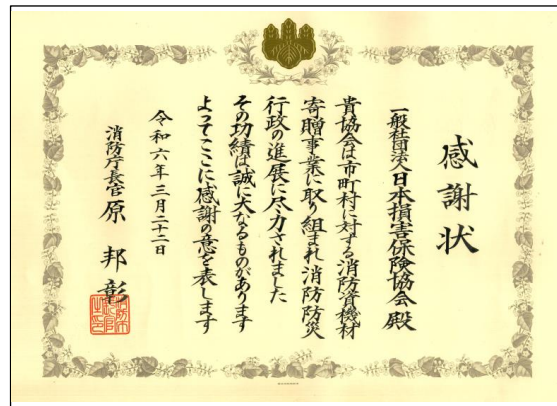 感謝状
一般社団法人日本損害保険協会殿
貴協会は市町村に対する消防資機材
寄贈事業に取り組まれ消防防災
行政の進展に尽力されました
その功績は誠に大なるものがあります
よってここに感謝の意を表します
令和六年三月二十二日
消防庁長官原邦彰